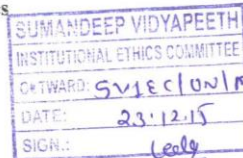 s
SUMANDEEP VIDYAPEETH
INSTITUTIONAL ETHICS COMMITTEE
OUTWARD: SVIEC/ON/
DATE: 23.12.15
SIGN.: